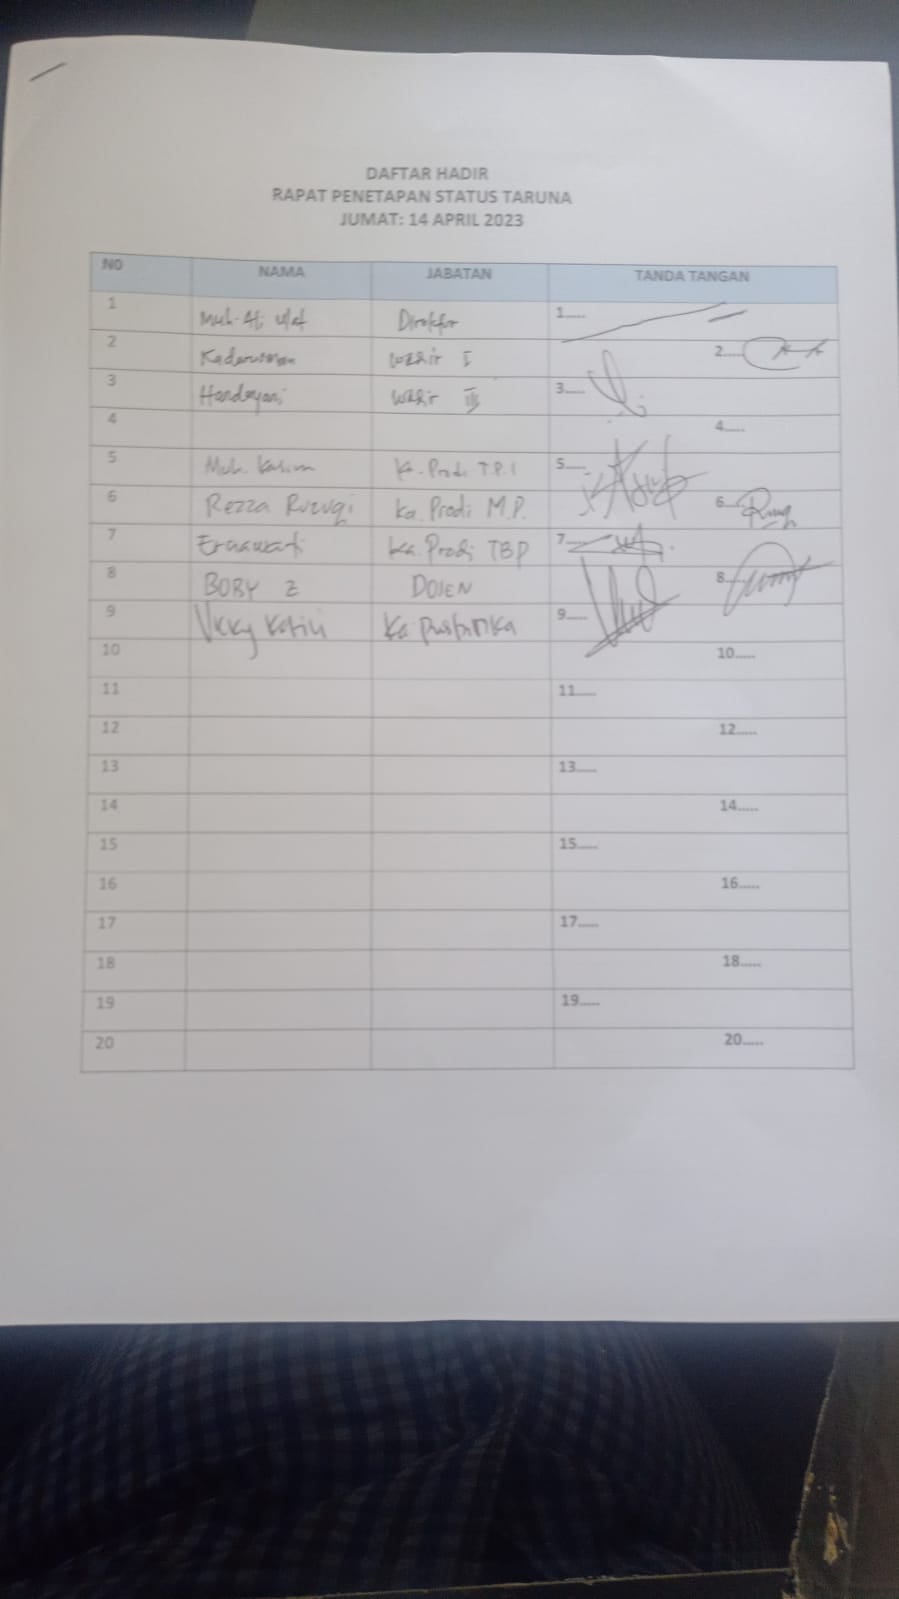 DAFTAR HADIR
RAPAT PENETAPAN STATUS TARUNA
JUMAT: 14 APRIL 2023
NO NAMA JABATAN TANDA TANGAN
1 Muh. Ali Direktur 1.....
2 Kadarusman Wadir I 2.....
3 Handayani Wadir III 3.....
4 4.....
5 Muh. Kasim Ka. Prodi T.P.I 5.....
6 Rezza Ruzuqi Ka. Prodi M.P. 6.....
7 Ernawati Ka. Prodi TBP 7.....
8 BOBY Z DOSEN 8.....
9 Vicky Katili Ka 9.....
10 10.....
11 11.....
12 12.....
13 13.....
14 14.....
15 15.....
16 16.....
17 17.....
18 18.....
19 19.....
20 20.....